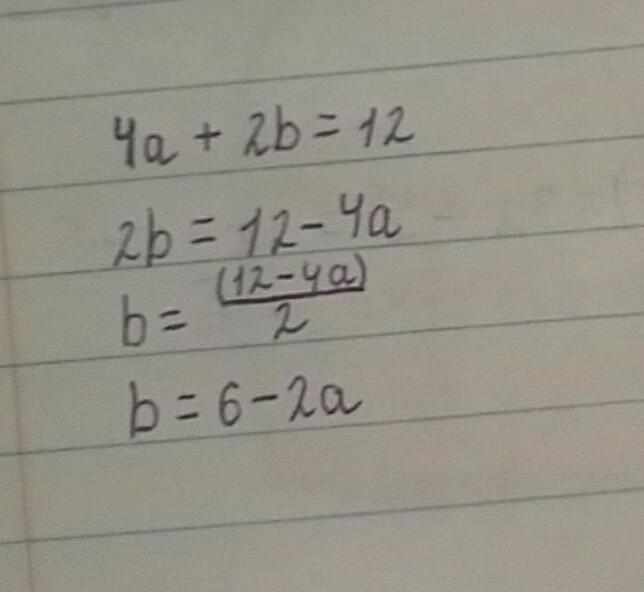 4a + 2b = 12
2b = 12 - 4a
b = (12 - 4a)/2
b = 6 - 2a